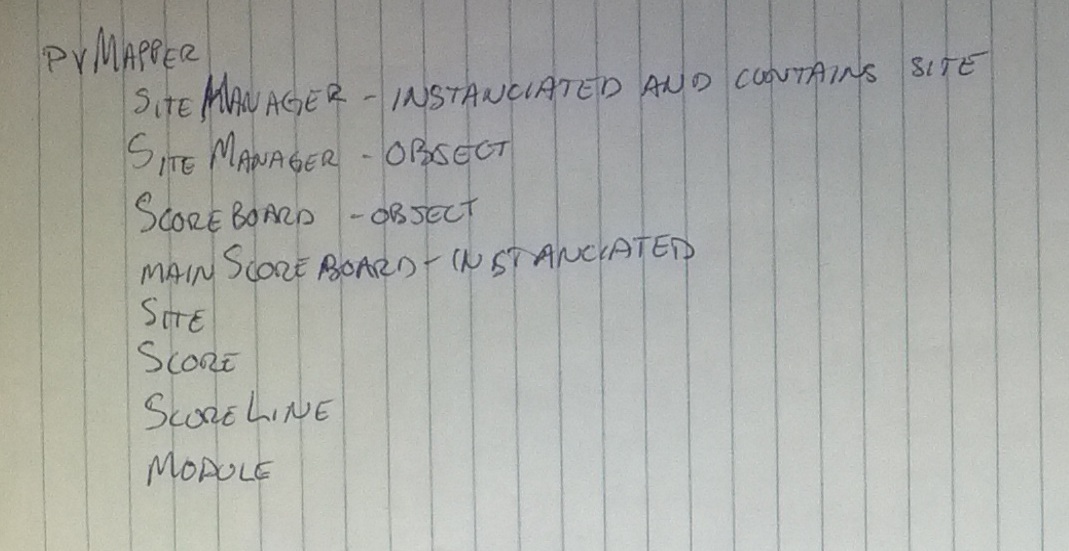 PVMAPPER
SITEMANAGER - INSTANCIATED AND CONTAINS SITE
SITEMANAGER - OBJECT
SCOREBOARD - OBJECT
MAINSCOREBOARD - INSTANCIATED
SITE
SCORE
SCORELINE
MODULE